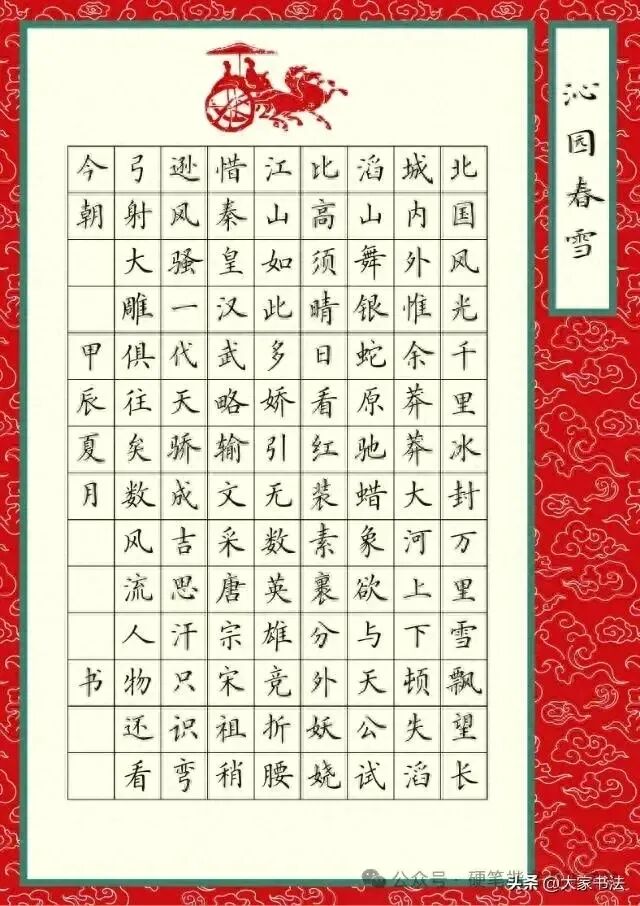 沁园春雪
北国风光千里冰封万里雪飘望长
城内外惟余莽莽大河上下顿失滔
滔山舞银蛇原驰蜡象欲与天公试
比高须晴日看红装素裹分外妖娆
江山如此多娇引无数英雄竞折腰
惜秦皇汉武略输文采唐宗宋祖稍
逊风骚一代天骄成吉思汗只识弯
弓射大雕俱往矣数风流人物还看
今朝 甲辰夏月 书
公众号 · 硬笔
头条 @大家书法